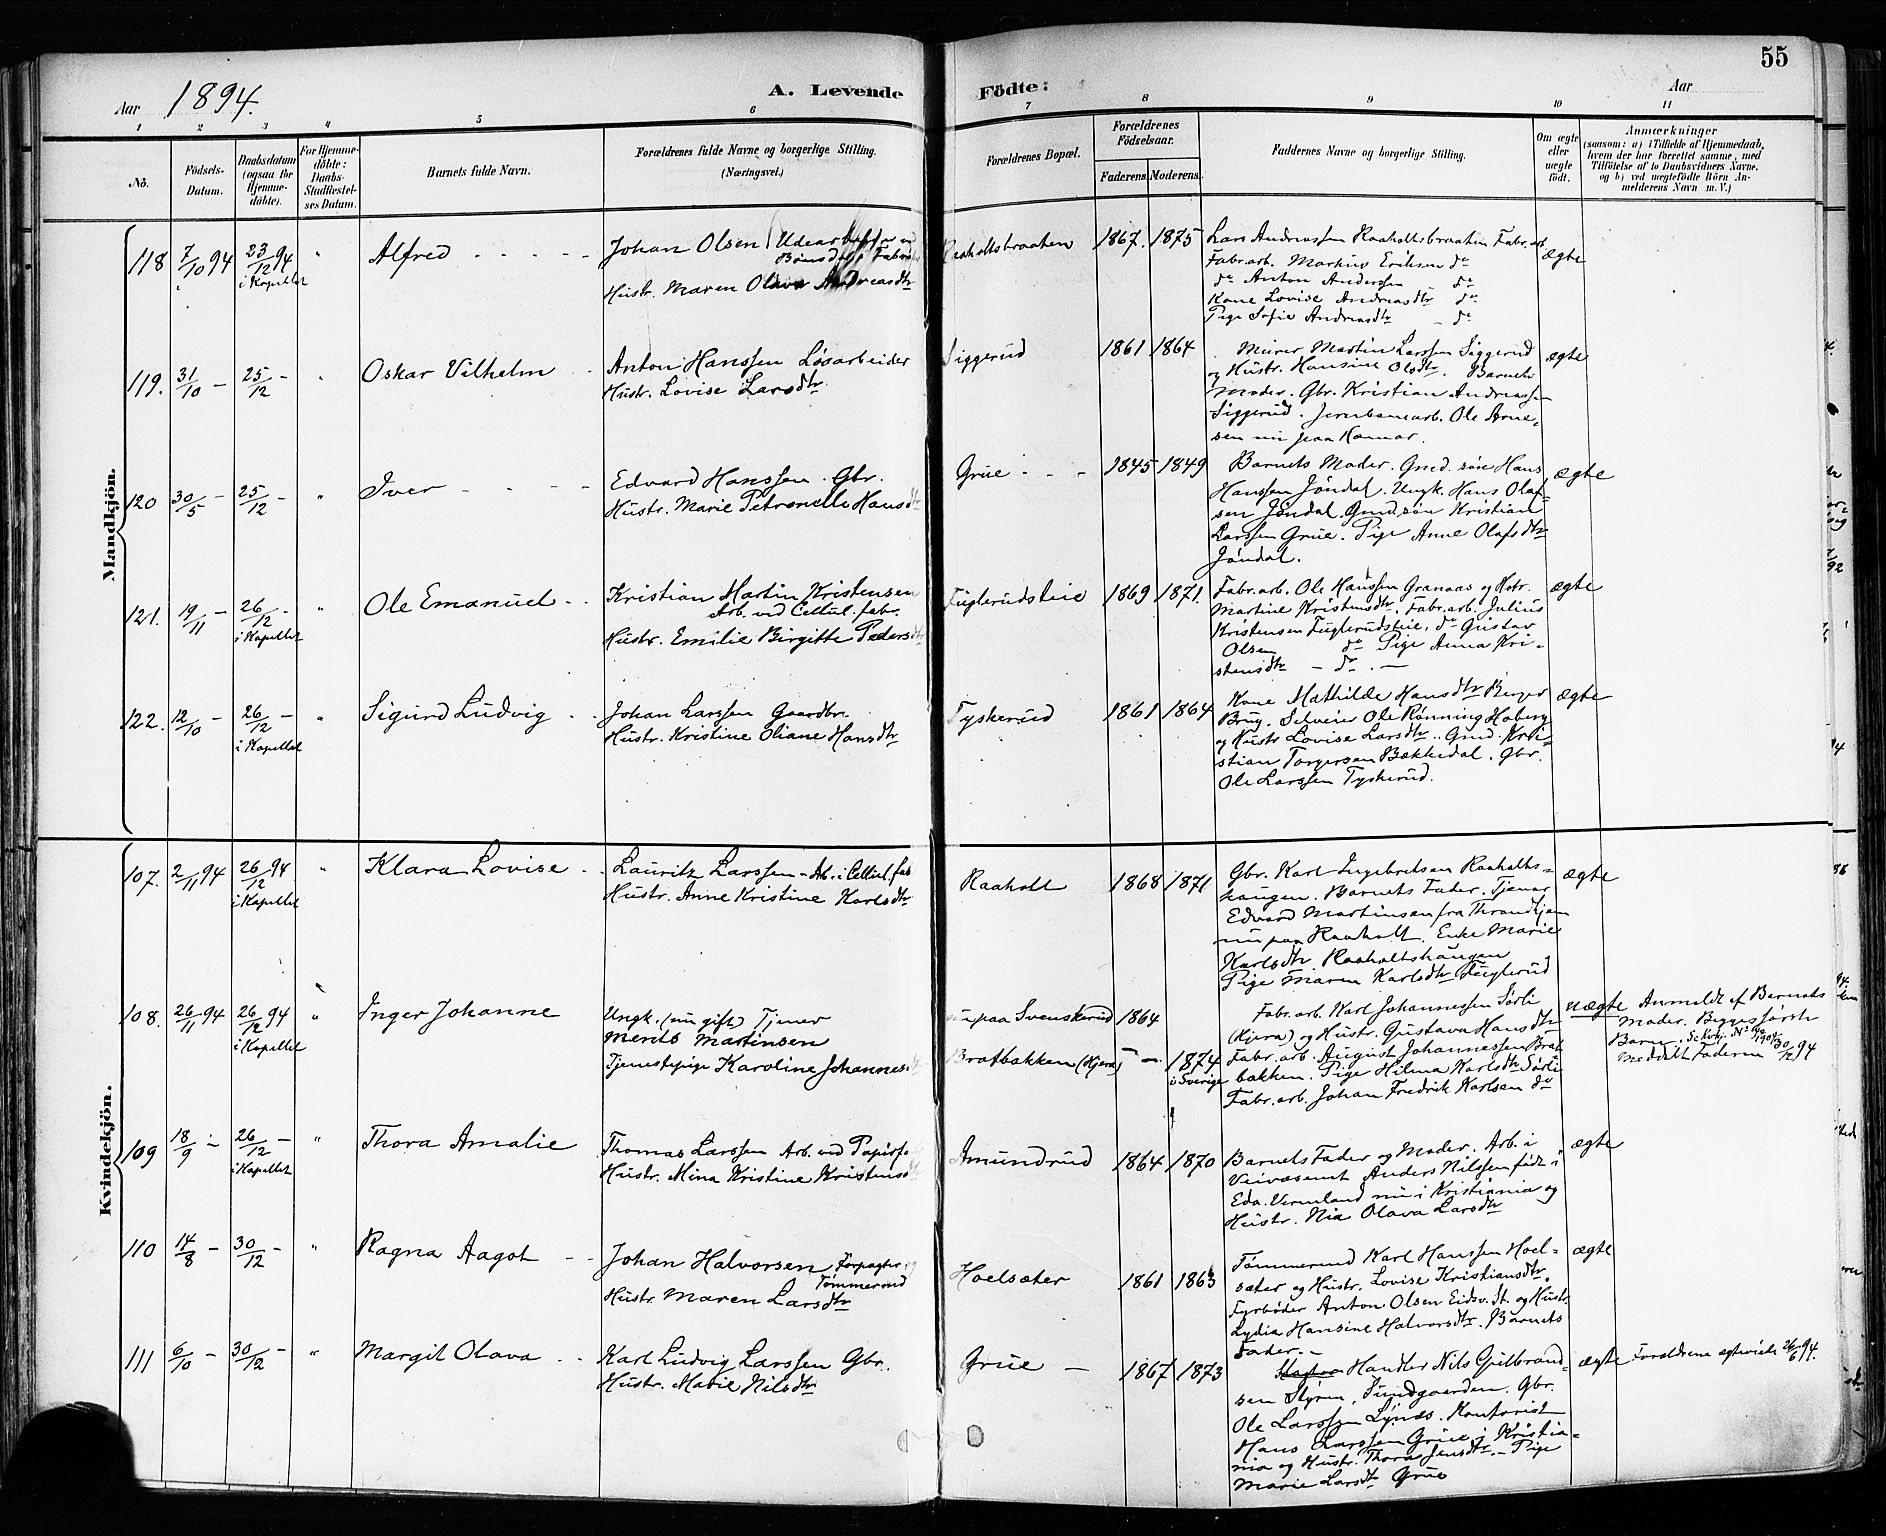 55
Aar 1894.
A. Levende
Födte:
Aar
1 2 3 4 5 6 7 8 9 10 11
No.
Födsels-
Datum.
Daabsdatum
(ogsaa for
Hjemme-
döbte).
For Hjemme-
döbte:
Daabs-
Stadfæstel-
ses Datum.
Barnets fulde Navn.
Forældrenes fulde Navne og borgerlige Stilling.
(Næringsvei.)
Forældrenes Bopæl.
Forældrenes
Födselsaar.
Faderens. Moderens.
Faddernes Navne og borgerlige Stilling.
Om ægte
eller
uægte
födt.
Anmærkninger
(saasom: a) i Tilfælde af Hjemmedaab,
hvem der har forrettet samme, med
Tilföielse af to Daabsvidners Navne.
og b) ved uægtefödte Börn An-
melderens Navn m. V.)
Mandkjön.
118 7/10 94 23/12 94 " Alfred
i Kapellet
Johan Olsen Udearbeider ved
Hustr. Maren Olava Andreasdtr
Raaholtsbraaten 1867. 1875
Lars Andreassen Raaholtsbraaten Fabr.arb.
Fabr.arb. Markus Eriksen do
do Anton Anderssen - do
Kone Lovise Andreasdtr do
Pige Sofie Andreasdtr - do
ægte
119. 31/10 - 25/12 - " Oskar Vilhelm
Anton Hanssen Løsarbeider
Hustr. Lovise Larsdtr.
Siggerud 1861 1864
Murer Martin Larssen Siggerud
og Hustr. Hansine Olsdtr. Barnets
Moder. Gbr. Kristian Andreassen
Siggerud. Jernbanearb. Ole Arne-
sen nu paa Hamar.
ægte
120 30/5 - 25/12 - " Iver
Edvard Hanssen. Gbr.
Hustr. Marie Petronelle Hansdtr
Grue 1845 1849
Barnets Moder. Gmd. søn Hans
Hanssen Jøndal. Ungk. Hans Olaf-
sen Jøndal. Gmd. søn Kristian
Larssen Grue. Pige Anne Olafsdtr
Jøndal.
ægte
121. 19/11 - 26/12 - " Ole Emanuel
i Kapellet
Kristian Martin Kristensen
Arb. ved Cellul. fabr.
Hustr. Emilie Birgitte Pedersdtr
Fuglerudsteie 1869 1871.
Fabr.arb. Ole Hanssen Granaas og Hstr.
Martine Kristensdtr. Fabr.arb. Julius
Kristensen Fuglerudsteie, do Gustav
Olsen do Pige Anna Kri-
stensdtr - do. -
ægte
122. 12/10 - 26/12 - " Sigurd Ludvig
i Kapellet
Johan Larssen Gaardbr.
Hustr. Kristine Oliane Hansdtr
Tyskerud 1861 1864
Kone Mathilde Hansdtr Berger
Brug. Selveier Ole Rønning Hoberg
og Hustr Lovise Larsdtr. Gmd. Kri-
stian Torgersen Bækkedal. Gbr.
Ole Larssen Tyskerud.
ægte
Kvindekjön.
107. 2/11 94 26/12 94 " Klara Lovise
i Kapellet
Lauritz Larssen - Arb. i Cellul. fab
Hustr. Anne Kristine Karlsdtr
Raaholt 1868 1871
Gbr. Karl Ingebretsen Raaholts-
haugen. Barnets Fader. Tjener
Edvard Martinsen fra Throndhjem
nu paa Raaholt. Enke Marie
Karlsdtr Raaholtshaugen
Pige Maren Karlsdtr Fuglerud
ægte
108. 26/11 94 26/12 94 " Inger Johanne
i Kapellet
Ungk. (nu gift) Tjener
Merits Martinsen
Tjenestepige Karoline Johannesdtr
nu paa Svenskerud 1864
Bratbakken (Hjera) - - 1874
i Sverige
Fabr. arb. Karl Johannessen Sørli
(Hjera) og Hustr. Gustava Hansdtr
Fabr. arb. August Johannessen Brat
bakken. Pige Hilma Karlsdtr Sørli
Fabr. arb. Johan Fredrik Karlsen do
uægte
Anmeldt af Barnets
Moder. Begges første
Barn.
Meddelt Faderen 30/12 94
109 18/9 - 26/12 - " Thora Amalie
i Kapellet
Thomas Larssen Arb. ved Papirf
Hustr. Mina Kristine Kristensdtr
Amundrud 1864 1870
Barnets Fader og Moder. Arb. i
Veivæsenet Anders Nilssen født i
Eda. Vermland nu i Kristiania og
Hustr. Nia Olava Larsdtr
ægte
110 14/8 - 30/12 - " Ragna Aagot
Johan Halvorsen Forpagter,
Tømmermd
Hustr. Maren Larsdtr
Hoelsæter 1861 1863
Tømmermd Karl Hanssen Hoel-
sæter og Hustr. Lovise Kristiansdtr.
Fyrbøder Anton Olsen Eidsv. St. og Hustr.
Lydia Hansine Halvorsdtr. Barnets
Fader. -
ægte
111 6/10 - 30/12 - " Margit Olava
Karl Ludvig Larssen Gbr.
Hustr. Marie Nilsdtr
Grue - 1867 1873
Handler Nils Gulbrand-
sen Styren, Sundgaarden. Gbr.
Ole Larssen Lynæs. Kontorist
Hans Larssen Grue i Kristia-
nia og Hustr. Thora Jensdtr. - Pige
Marie Larsdtr Grue
ægte
Forældrene ægteviede 26/6 94.